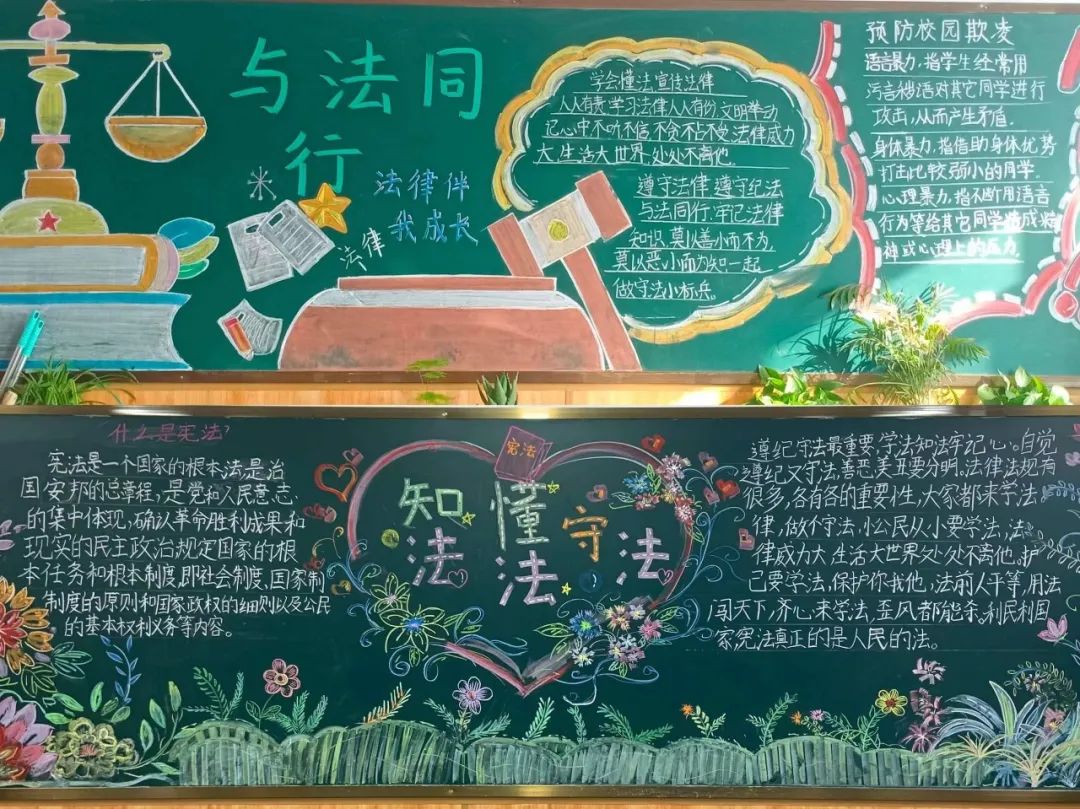 与法同
行
法律伴
我成长
法律
学会懂法宣传法律
人人有责,学习法律人人有份,文明举动
记心中不听不信不贪不占不受,法律威力
大,生活大世界,处处不离他。
遵守法律,遵守纪法
与法同行,牢记法律
知识,莫以善小而不为,
莫以恶小而为知一起
做守法小标兵。
预防校园欺凌
语言暴力,指学生经常用
污言秽语对其它同学进行
攻击,从而产生矛盾。
身体暴力,指借助身体优势
打击比较弱小的同学。
心理暴力,指不断用语言
行为等给其它同学造成精
神或心理上的压力。
什么是宪法?
宪法是一个国家的根本法,是治
国安邦的总章程,是党和人民意志
的集中体现,确认革命胜利成果和
现实的民主政治,规定国家的根
本任务和根本制度,即社会制度,国家制
制度的原则和国家政权的细则以及公民
的基本权利义务等内容。
宪法
知
法
懂
法
守
法
遵纪守法最重要,学法知法牢记心。自觉
遵纪又守法,善恶美丑要分明。法律法规有
很多,各有各的重要性,大家都来学法
律,做个守法小公民从小要学法,法
律威力大,生活大世界处处不离他。护
己要学法,保护你我他,法前人平等,用法
闯天下,齐心来学法,歪风都能杀。利民利国
家,宪法真正的是人民的法。